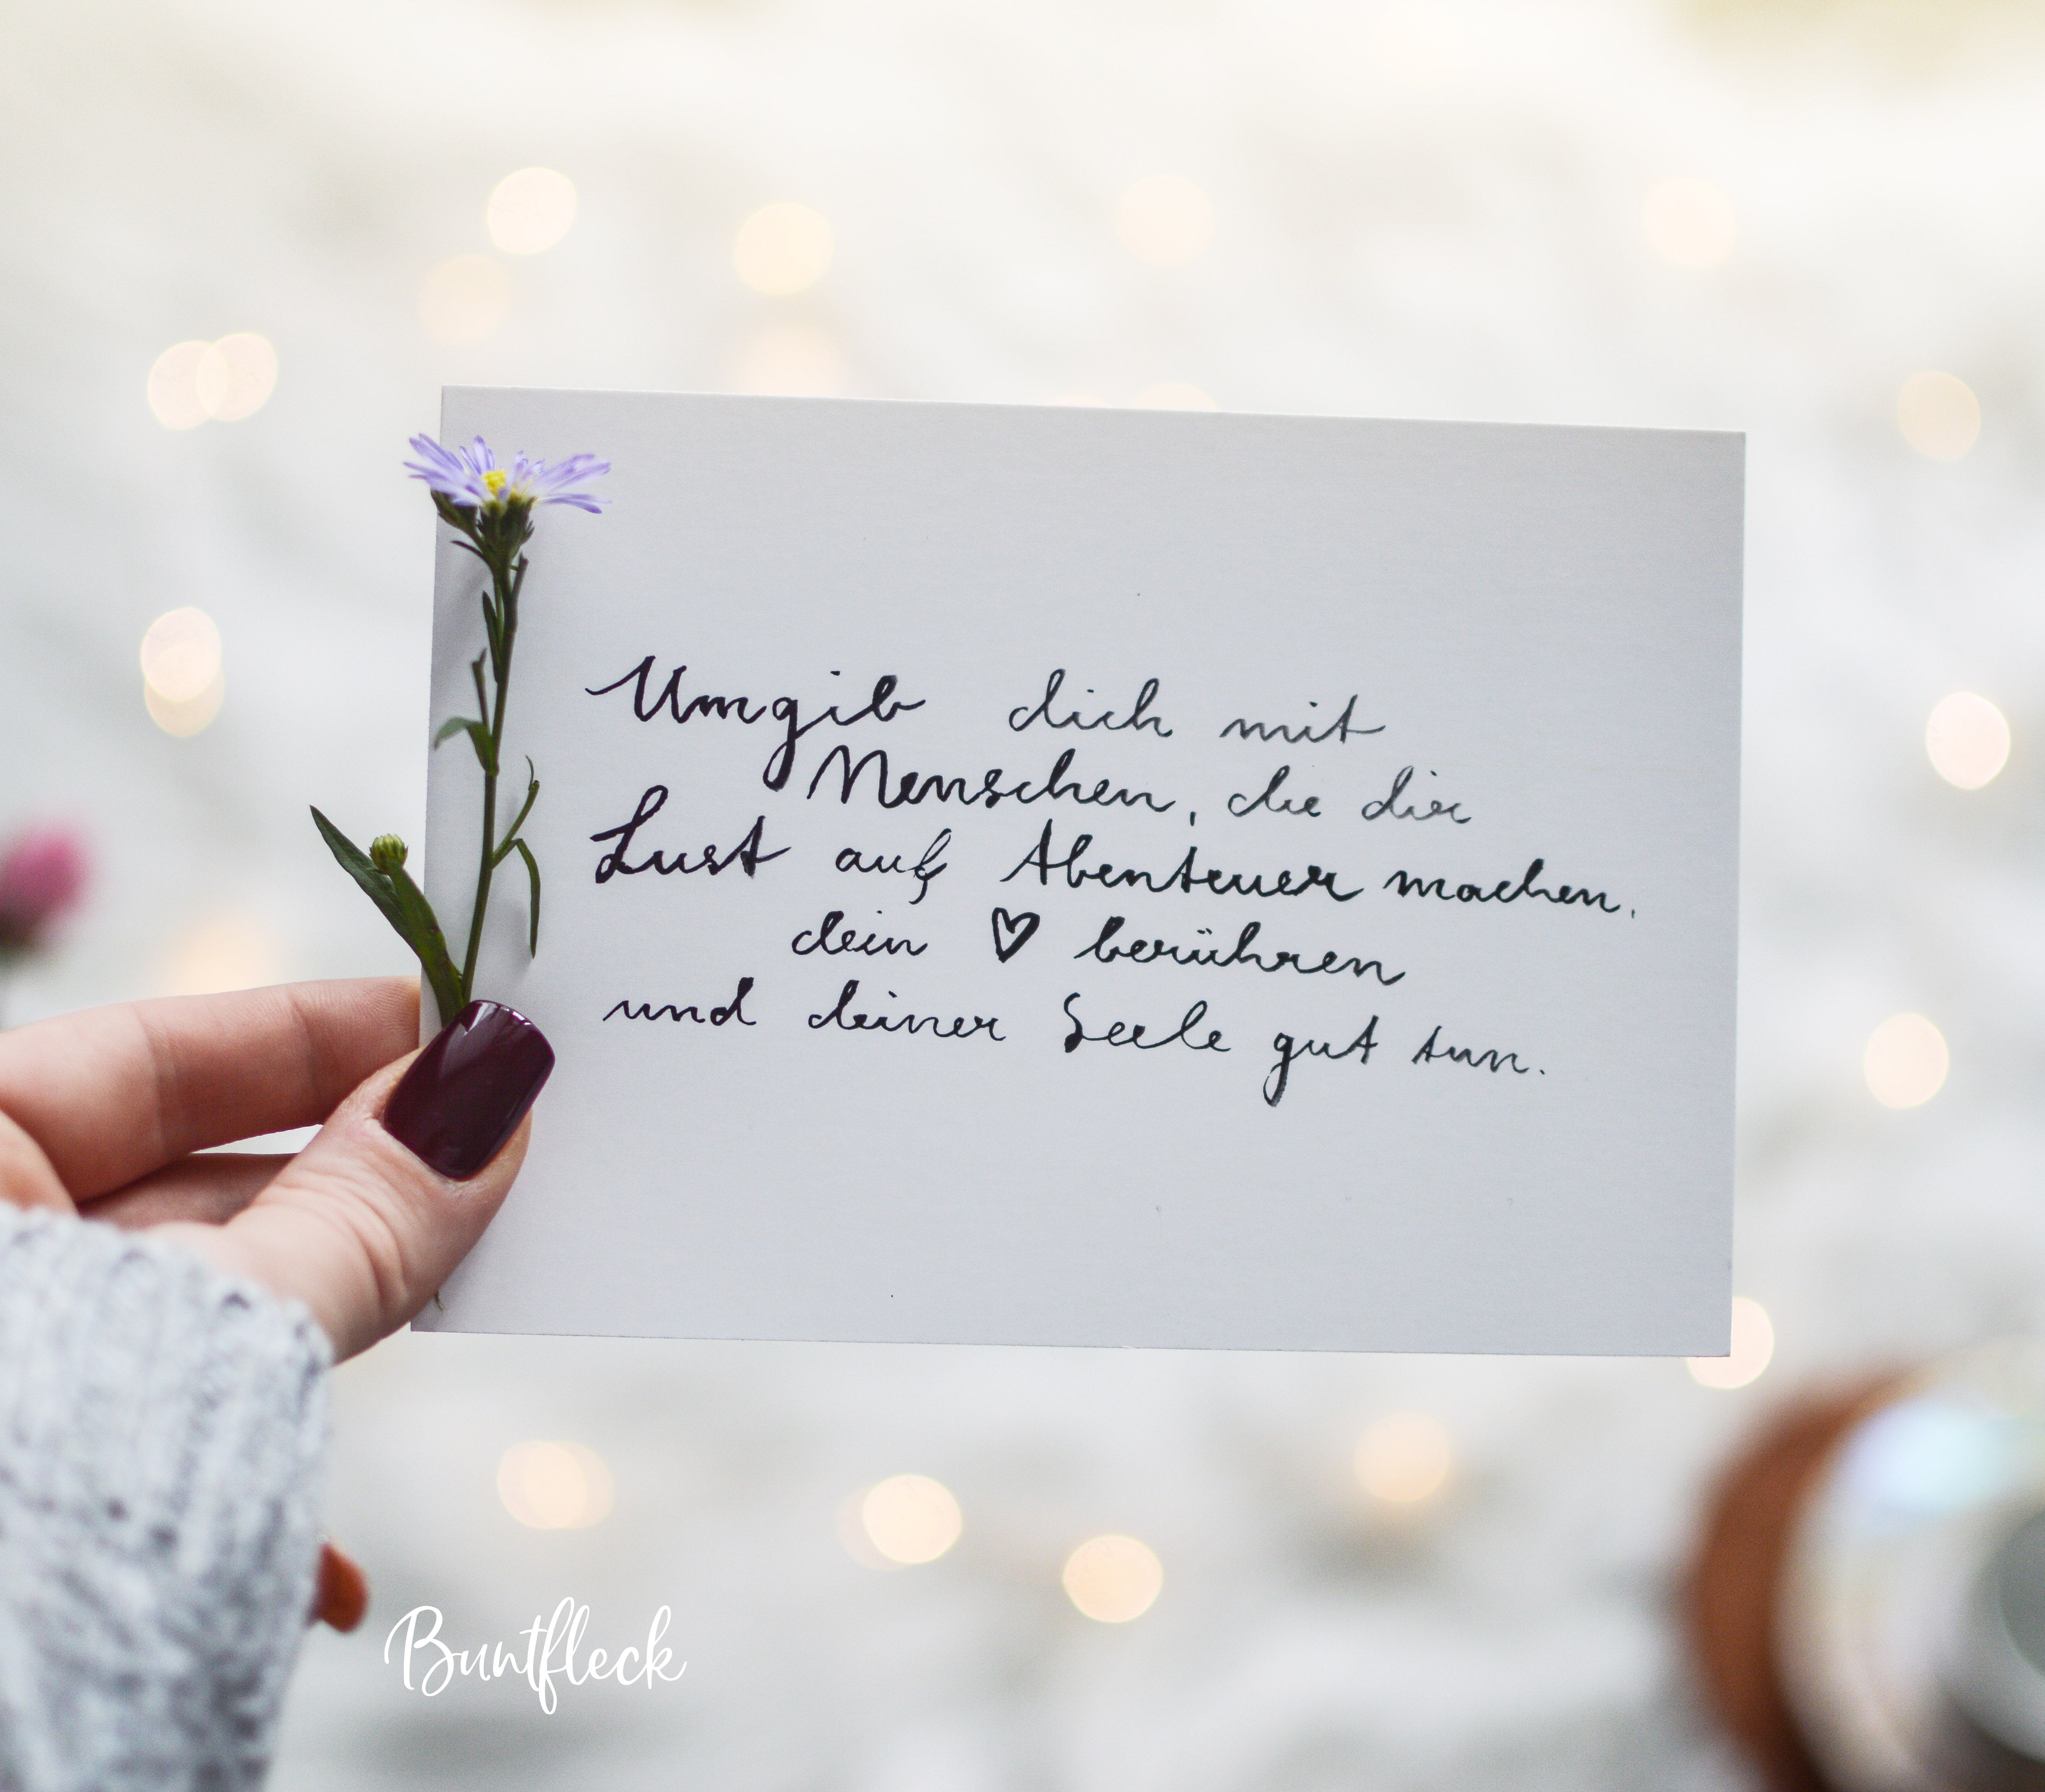 Umgib dich mit
Menschen, die dir
Lust auf Abenteuer machen,
dein ♡ berühren
und deiner Seele gut tun.
Buntfleck